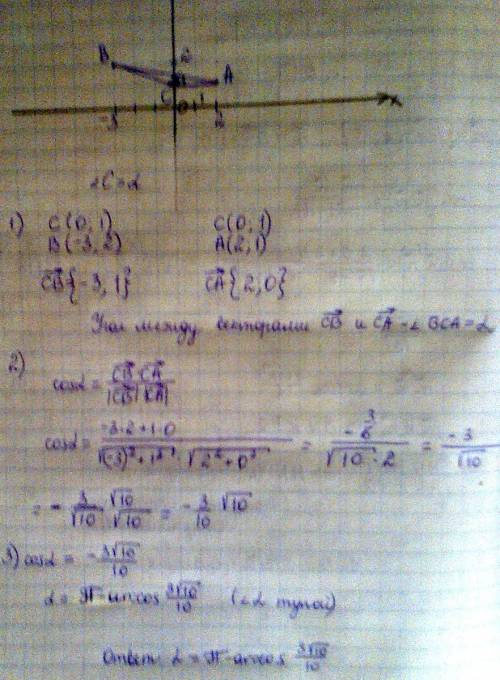 2
B
A
C
0 1
x
-3
2
∠C = α
1) C(0, 1) C(0, 1)
B(-3, 2) A(2, 1)
CB⃗{-3, 1} CA⃗{2, 0}
Угол между векторами CB⃗ и CA⃗ - ∠BCA = α
2)
cosα = CB⃗·CA⃗ / |CB⃗||CA⃗|
cosα = (-3·2 + 1·0) / (√((-3)² + 1²) · √(2² + 0²)) = -6 3 / (√10 · 2) = -3 / √10
= - 3/√10 · √10/√10 = - 3/10 √10
3) cosα = - 3√10/10
α = π - arccos 3√10/10 (∠α тупой)
Ответ: α = π - arccos 3√10/10